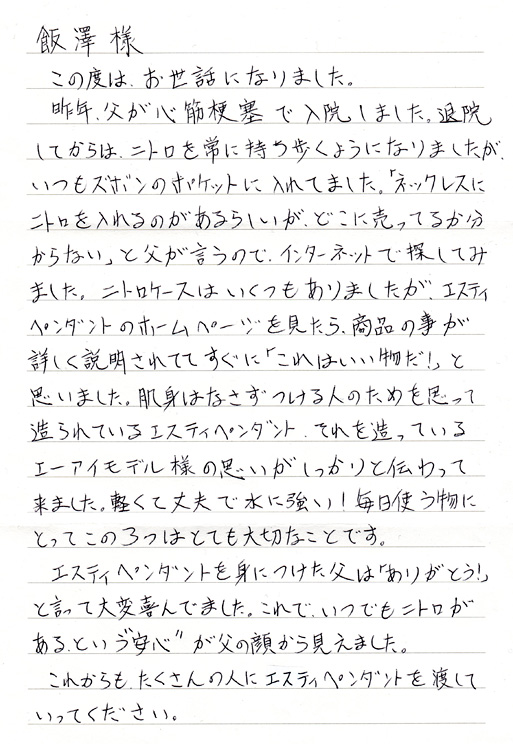 飯澤様
この度は、お世話になりました。
昨年、父が心筋梗塞で入院しました。退院
してからは、ニトロを常に持ち歩くようになりましたが、
いつもズボンのポケットに入れてました。「ネックレスに
ニトロを入れるのがあるらしいが、どこに売ってるか分
からない」と父が言うので、インターネットで探してみ
ました。ニトロケースはいくつもありましたが、エスティ
ペンダントのホームページを見たら、商品の事が
詳しく説明されててすぐに「これはいい物だ!」と
思いました。肌身はなさずつける人のためを思って
造られているエスティペンダント、それを造っている
エーアイモデル様の思いがしっかりと伝わって
来ました。軽くて丈夫で水に強い!毎日使う物に
とってこの3つはとても大切なことです。
エスティペンダントを身につけた父は「ありがとう!」
と言って大変喜んでました。これで、いつでもニトロが
ある、という“安心”が父の顔から見えました。
これからも、たくさんの人にエスティペンダントを渡して
いってください。